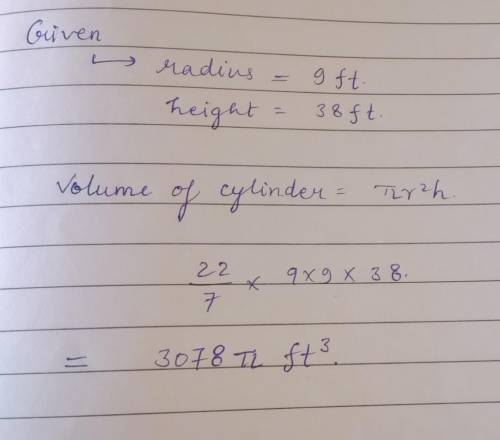 Given
↳ radius = 9 ft.
height = 38 ft.
Volume of cylinder = πr²h.
22/7 × 9×9 × 38.
= 3078 π ft³.